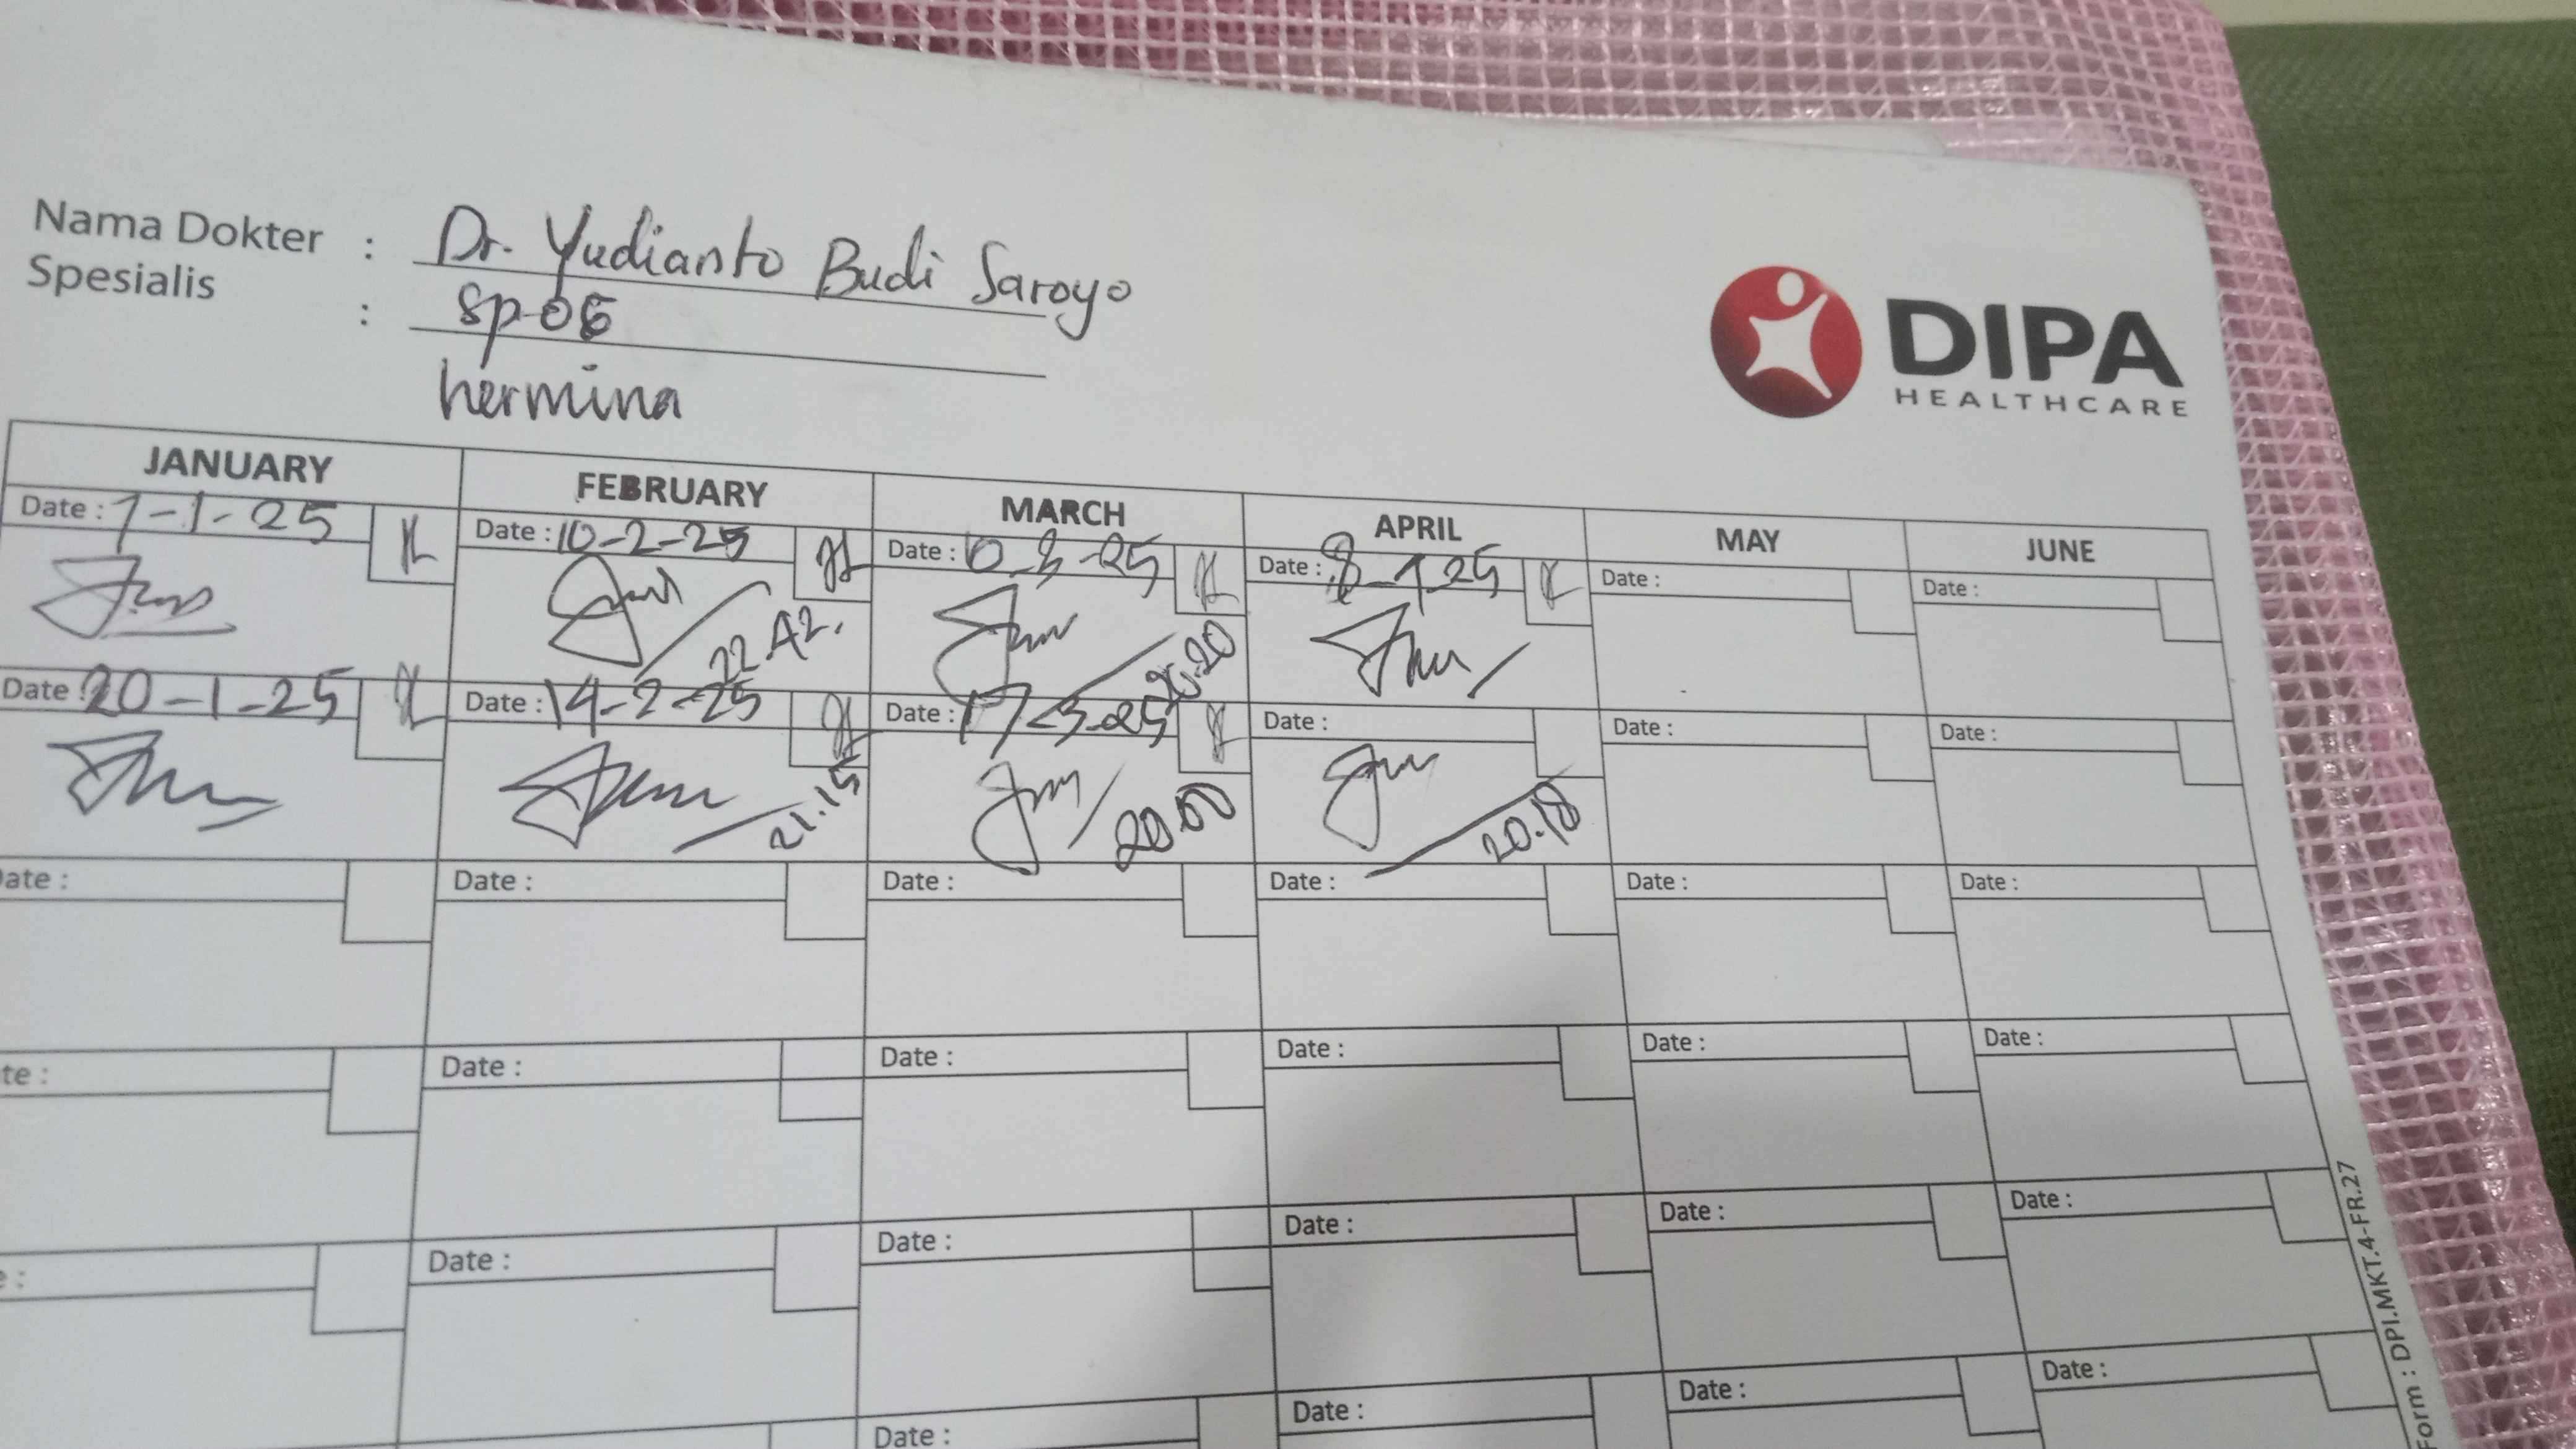 Nama Dokter : Dr. Yudianto Budi Saroyo
Spesialis : Sp OG
hermina
DIPA
HEALTHCARE
JANUARY FEBRUARY MARCH APRIL MAY JUNE
Date : 7-1-25 Date : 10-2-25 Date : 10-3-25 Date : 8-4-25 Date : Date :
22.42. 20.20
Date : 20-1-25 Date : 14-2-25 Date : 17-3-25 Date : Date : Date :
21.15 20.00 20.18
Date : Date : Date : Date : Date : Date :
te : Date : Date : Date : Date : Date :
e : Date : Date : Date : Date : Date :
Date : Date : Date : Date :
Form : DPI.MKT.4-FR.27